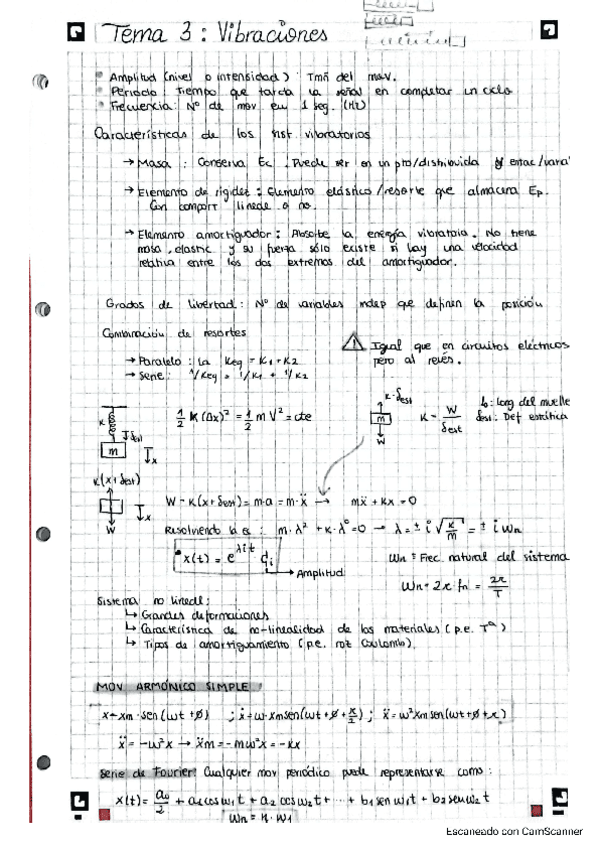 Tema 3 : Vibraciones
• Amplitud (nivel o intensidad) : Tmñ del mov.
• Periodo : Tiempo que tarda la señal en completar un ciclo
• Frecuencia : Nº de mov en 1 seg. (Hz)
Características de los sist. vibratorios
→ Masa : Conserva Ec. Puede ser en un pto/distribuida y
→ Elemento de rigidez : Elemento elástico/resorte que almacena Ep.
Con comport lineal o no.
→ Elemento amortiguador : Absorbe la energía vibratoria. No tiene
masa, elastic y su fuerza sólo existe si hay una velocidad
relativa entre los dos extremos del amortiguador.
Grados de libertad : Nº de variables indep que definen la posición
Combinación de resortes
→ Paralelo : la Keq = K1 + K2
→ Serie : 1/Keq = 1/K1 + 1/K2
⚠ Igual que en circuitos eléctricos
pero al revés.
K
δest
m
x
1/2 K (Δx)² = 1/2 m V² = cte
K·δest
m
W
K = W/δest
lo : long del muelle
δest : Def estática
K(x+δest)
W
x
W - K(x+δest) = m·a = m·ẍ → mẍ + Kx = 0
Resolviendo la ec : m·λ² + K·λ⁰ = 0 → λ = ± i √(K/m) = ± i Wn
• x(t) = e^(λit) di
→ Amplitud
Wn = Frec natural del sistema
Wn = 2π fn = 2π/T
Sistema no lineal :
↳ Grandes deformaciones
↳ Característica de no-linealidad de los materiales (p.e. Tª)
↳ Tipos de amortiguamiento (p.e. roz Coulomb).
MOV ARMÓNICO SIMPLE :
x = xm·sen(ωt+ø) ; ẋ = ω·xm sen(ωt+ø+π/2) ; ẍ = ω²xm sen(ωt+ø+π)
ẍ = -ω²x → ẍm = -mω²x = -kx
Serie de Fourier : Cualquier mov periódico puede representarse como :
x(t) = a0/2 + a1 cos ω1t + a2 cos ω2t + ... + b1 sen ω1t + b2 sen ω2t
Wn = n·W1
Escaneado con CamScanner